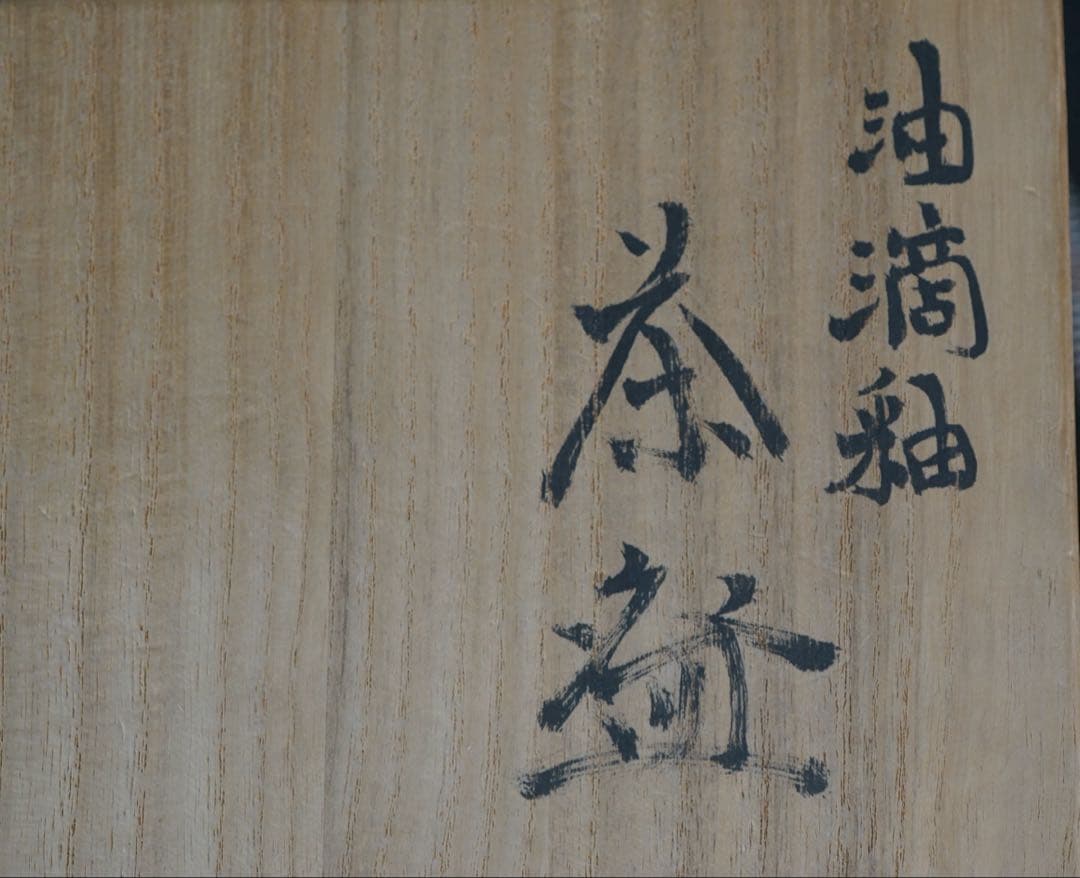 油滴釉
茶盌